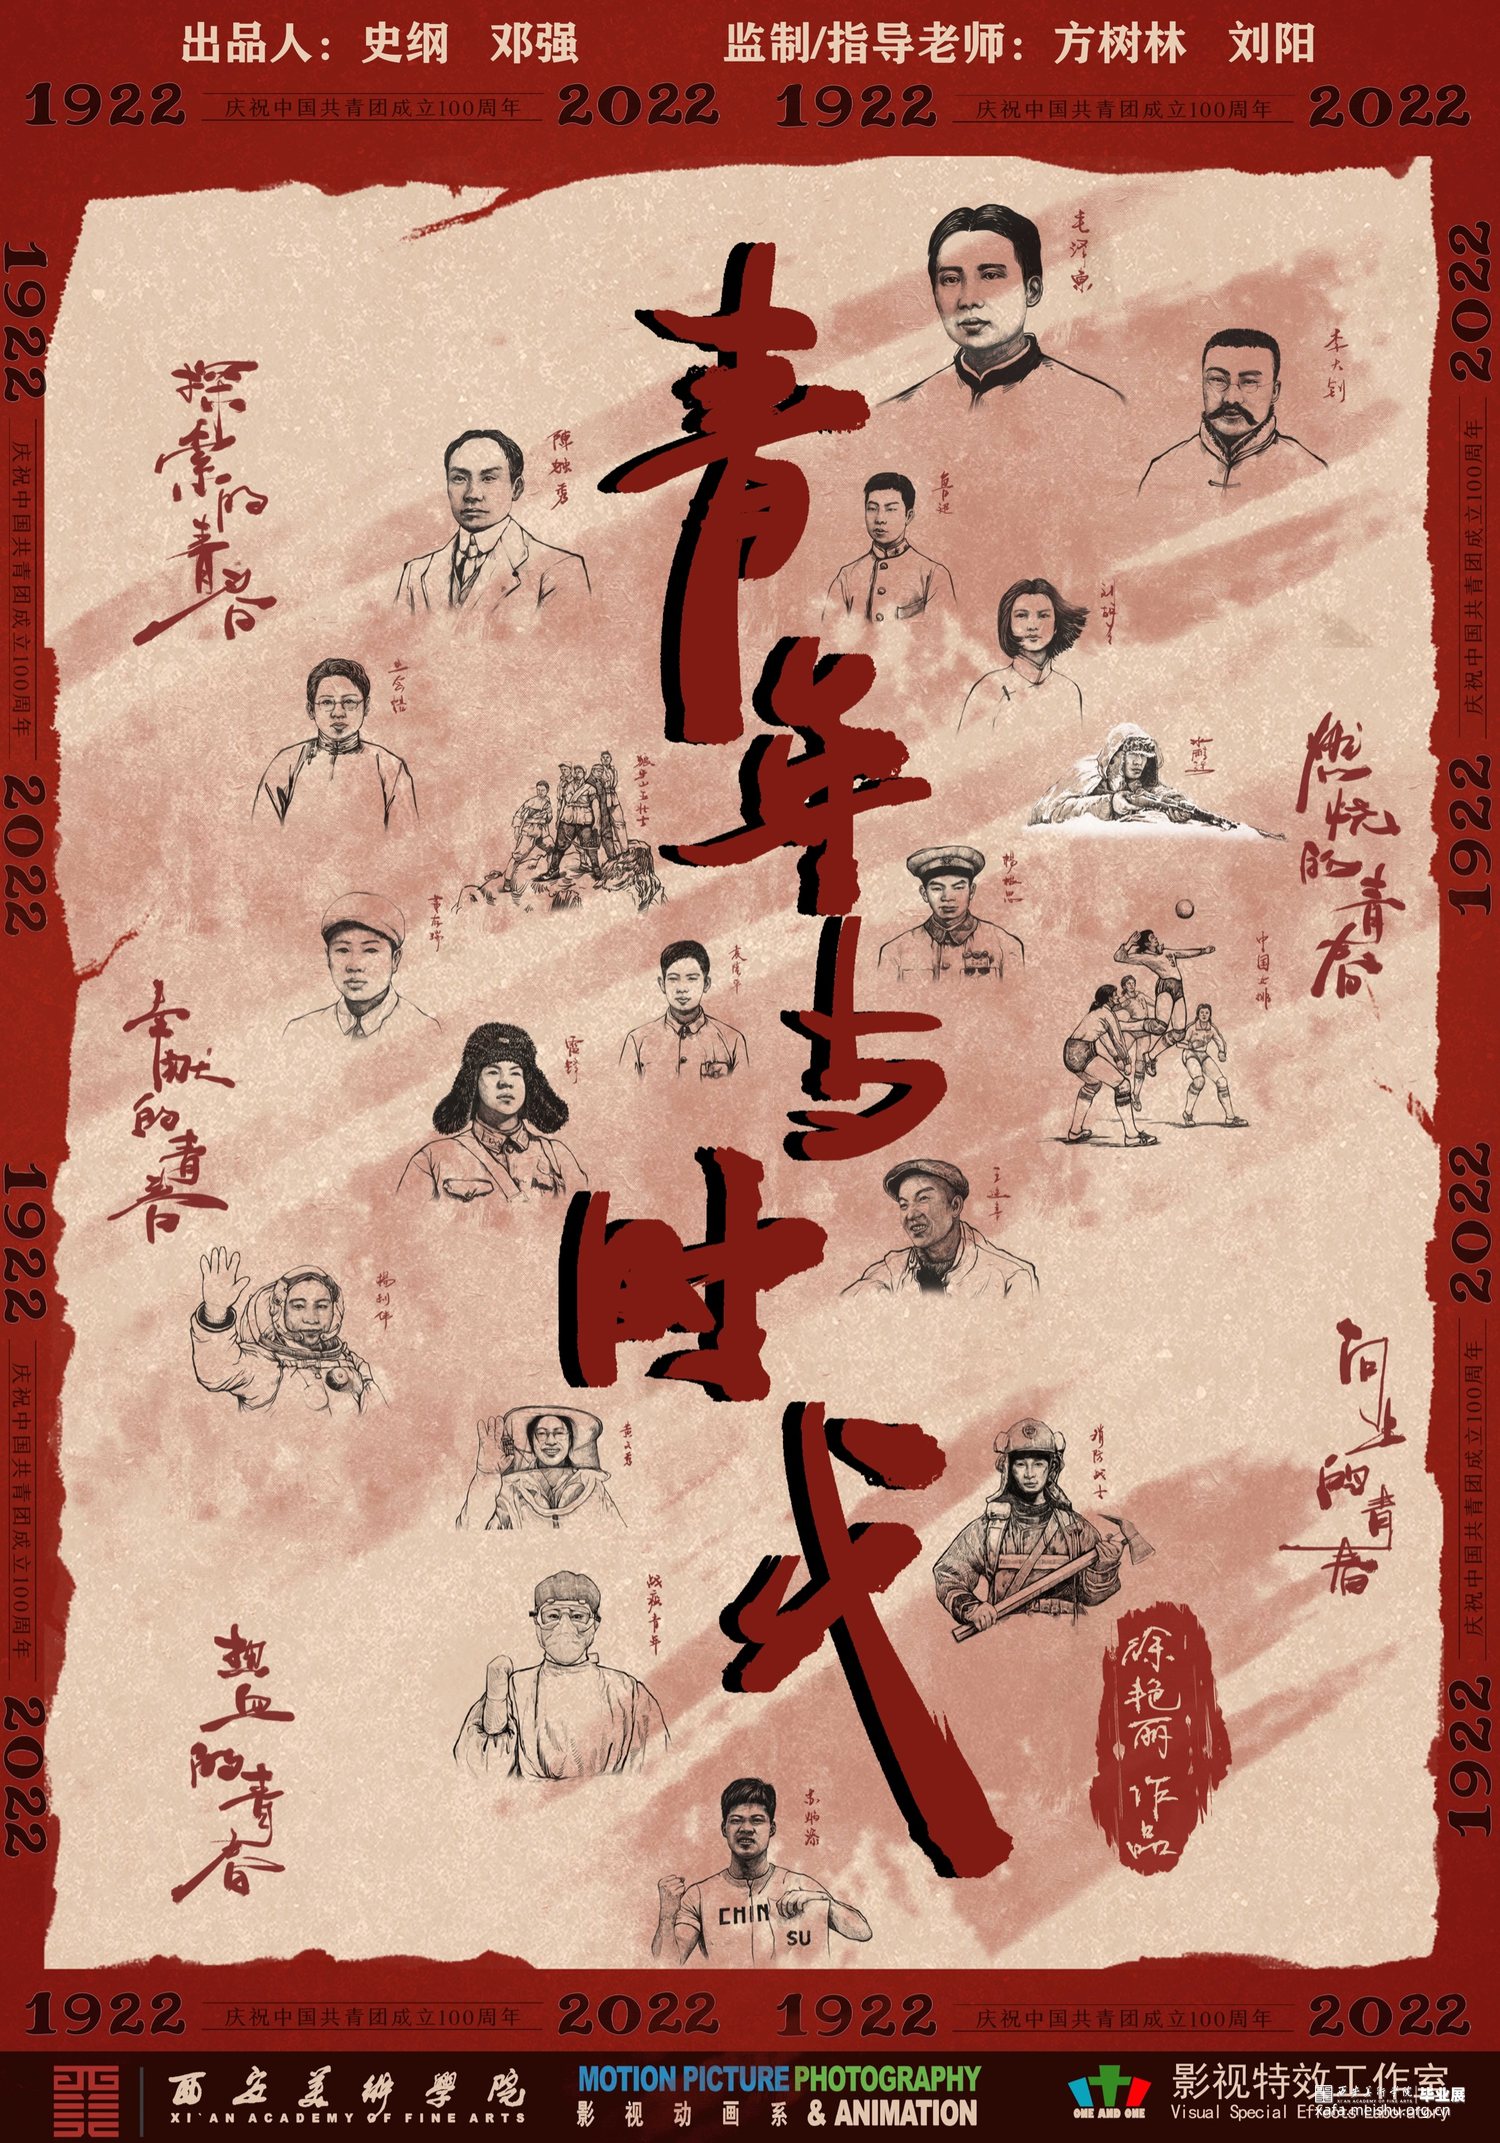 出品人：史纲 邓强
监制/指导老师：方树林 刘阳
1922 庆祝中国共青团成立100周年 2022
1922 庆祝中国共青团成立100周年 2022
1922 庆祝中国共青团成立100周年 2022
1922 庆祝中国共青团成立100周年 2022
1922 庆祝中国共青团成立100周年 2022
1922 庆祝中国共青团成立100周年 2022
青年与时代
毛泽东
李大钊
探索的青春
陳独秀
鲁迅
刘胡兰
王会悟
狼牙山五壮士
冰雕连
燃烧的青春
董存瑞
楊根思
袁隆平
中国女排
奉献的青春
雷锋
王进喜
楊利伟
向上的青春
黄文秀
消防战士
战疫青年
热血的青春
苏炳添
CHIN
SU
徐艳丽 作品
1922 庆祝中国共青团成立100周年 2022
1922 庆祝中国共青团成立100周年 2022
西安美術學院
XI'AN ACADEMY OF FINE ARTS
MOTION PICTURE PHOTOGRAPHY
影视动画系 & ANIMATION
ONE AND ONE
影视特效工作室
Visual Special Effects Laboratory
西安美术学院 毕业展
xafa.meishu.org.cn